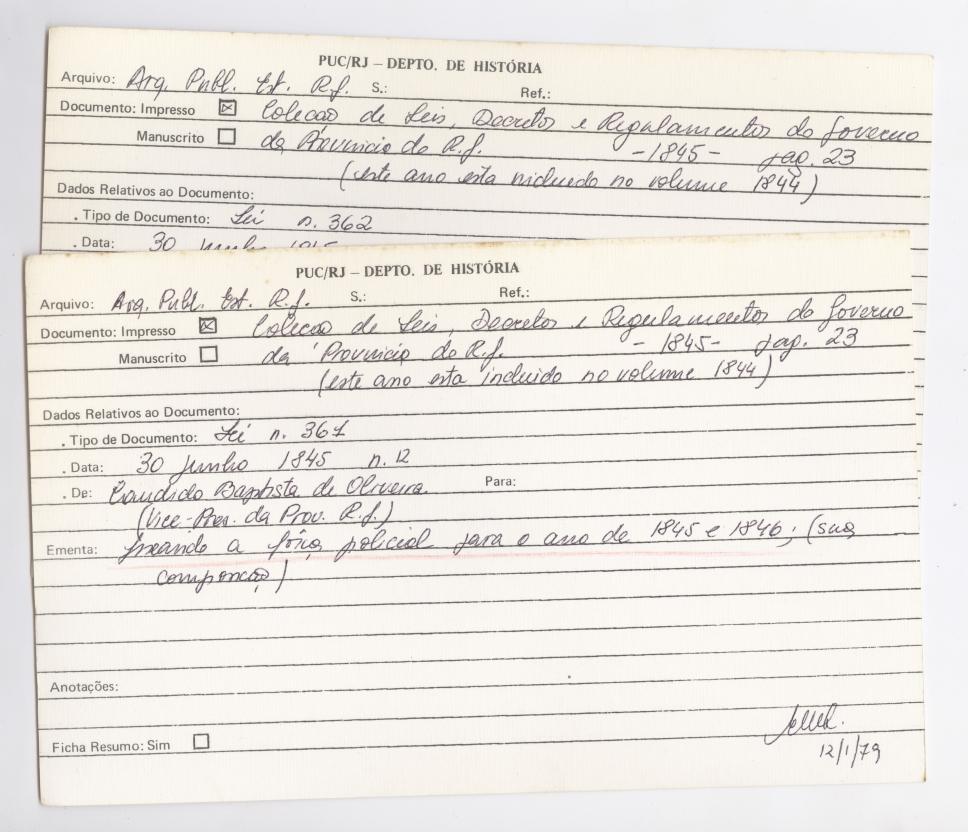 PUC/RJ – DEPTO. DE HISTÓRIA
Arquivo: Arq. Publ. Est. R.J. S.: Ref.:
Documento: Impresso ☒ Coleção de Leis, Decretos e Regulamentos do Governo
Manuscrito ☐ da Provincia do R.J. -1845- pag. 23
(este ano esta incluido no volume 1844)
Dados Relativos ao Documento:
. Tipo de Documento: Lei n. 362
. Data: 30 junho 1845
PUC/RJ – DEPTO. DE HISTÓRIA
Arquivo: Arq. Publ. Est. R.J. S.: Ref.:
Documento: Impresso ☒ Coleção de Leis, Decretos e Regulamentos do Governo
Manuscrito ☐ da Provincia do R.J. -1845- pag. 23
(este ano esta incluido no volume 1844)
Dados Relativos ao Documento:
. Tipo de Documento: Lei n. 361
. Data: 30 junho 1845 n.12
. De: Candido Baptista de Oliveira Para:
(Vice-Pres. da Prov. R.J.)
Ementa: fixando a força policial para o ano de 1845 e 1846; (sua
composição)
Anotações:
Ficha Resumo: Sim ☐
12/1/79